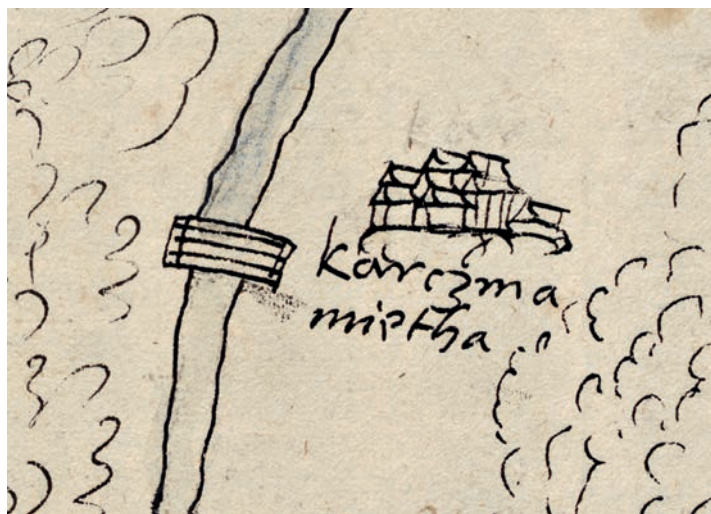 karczma
mietha